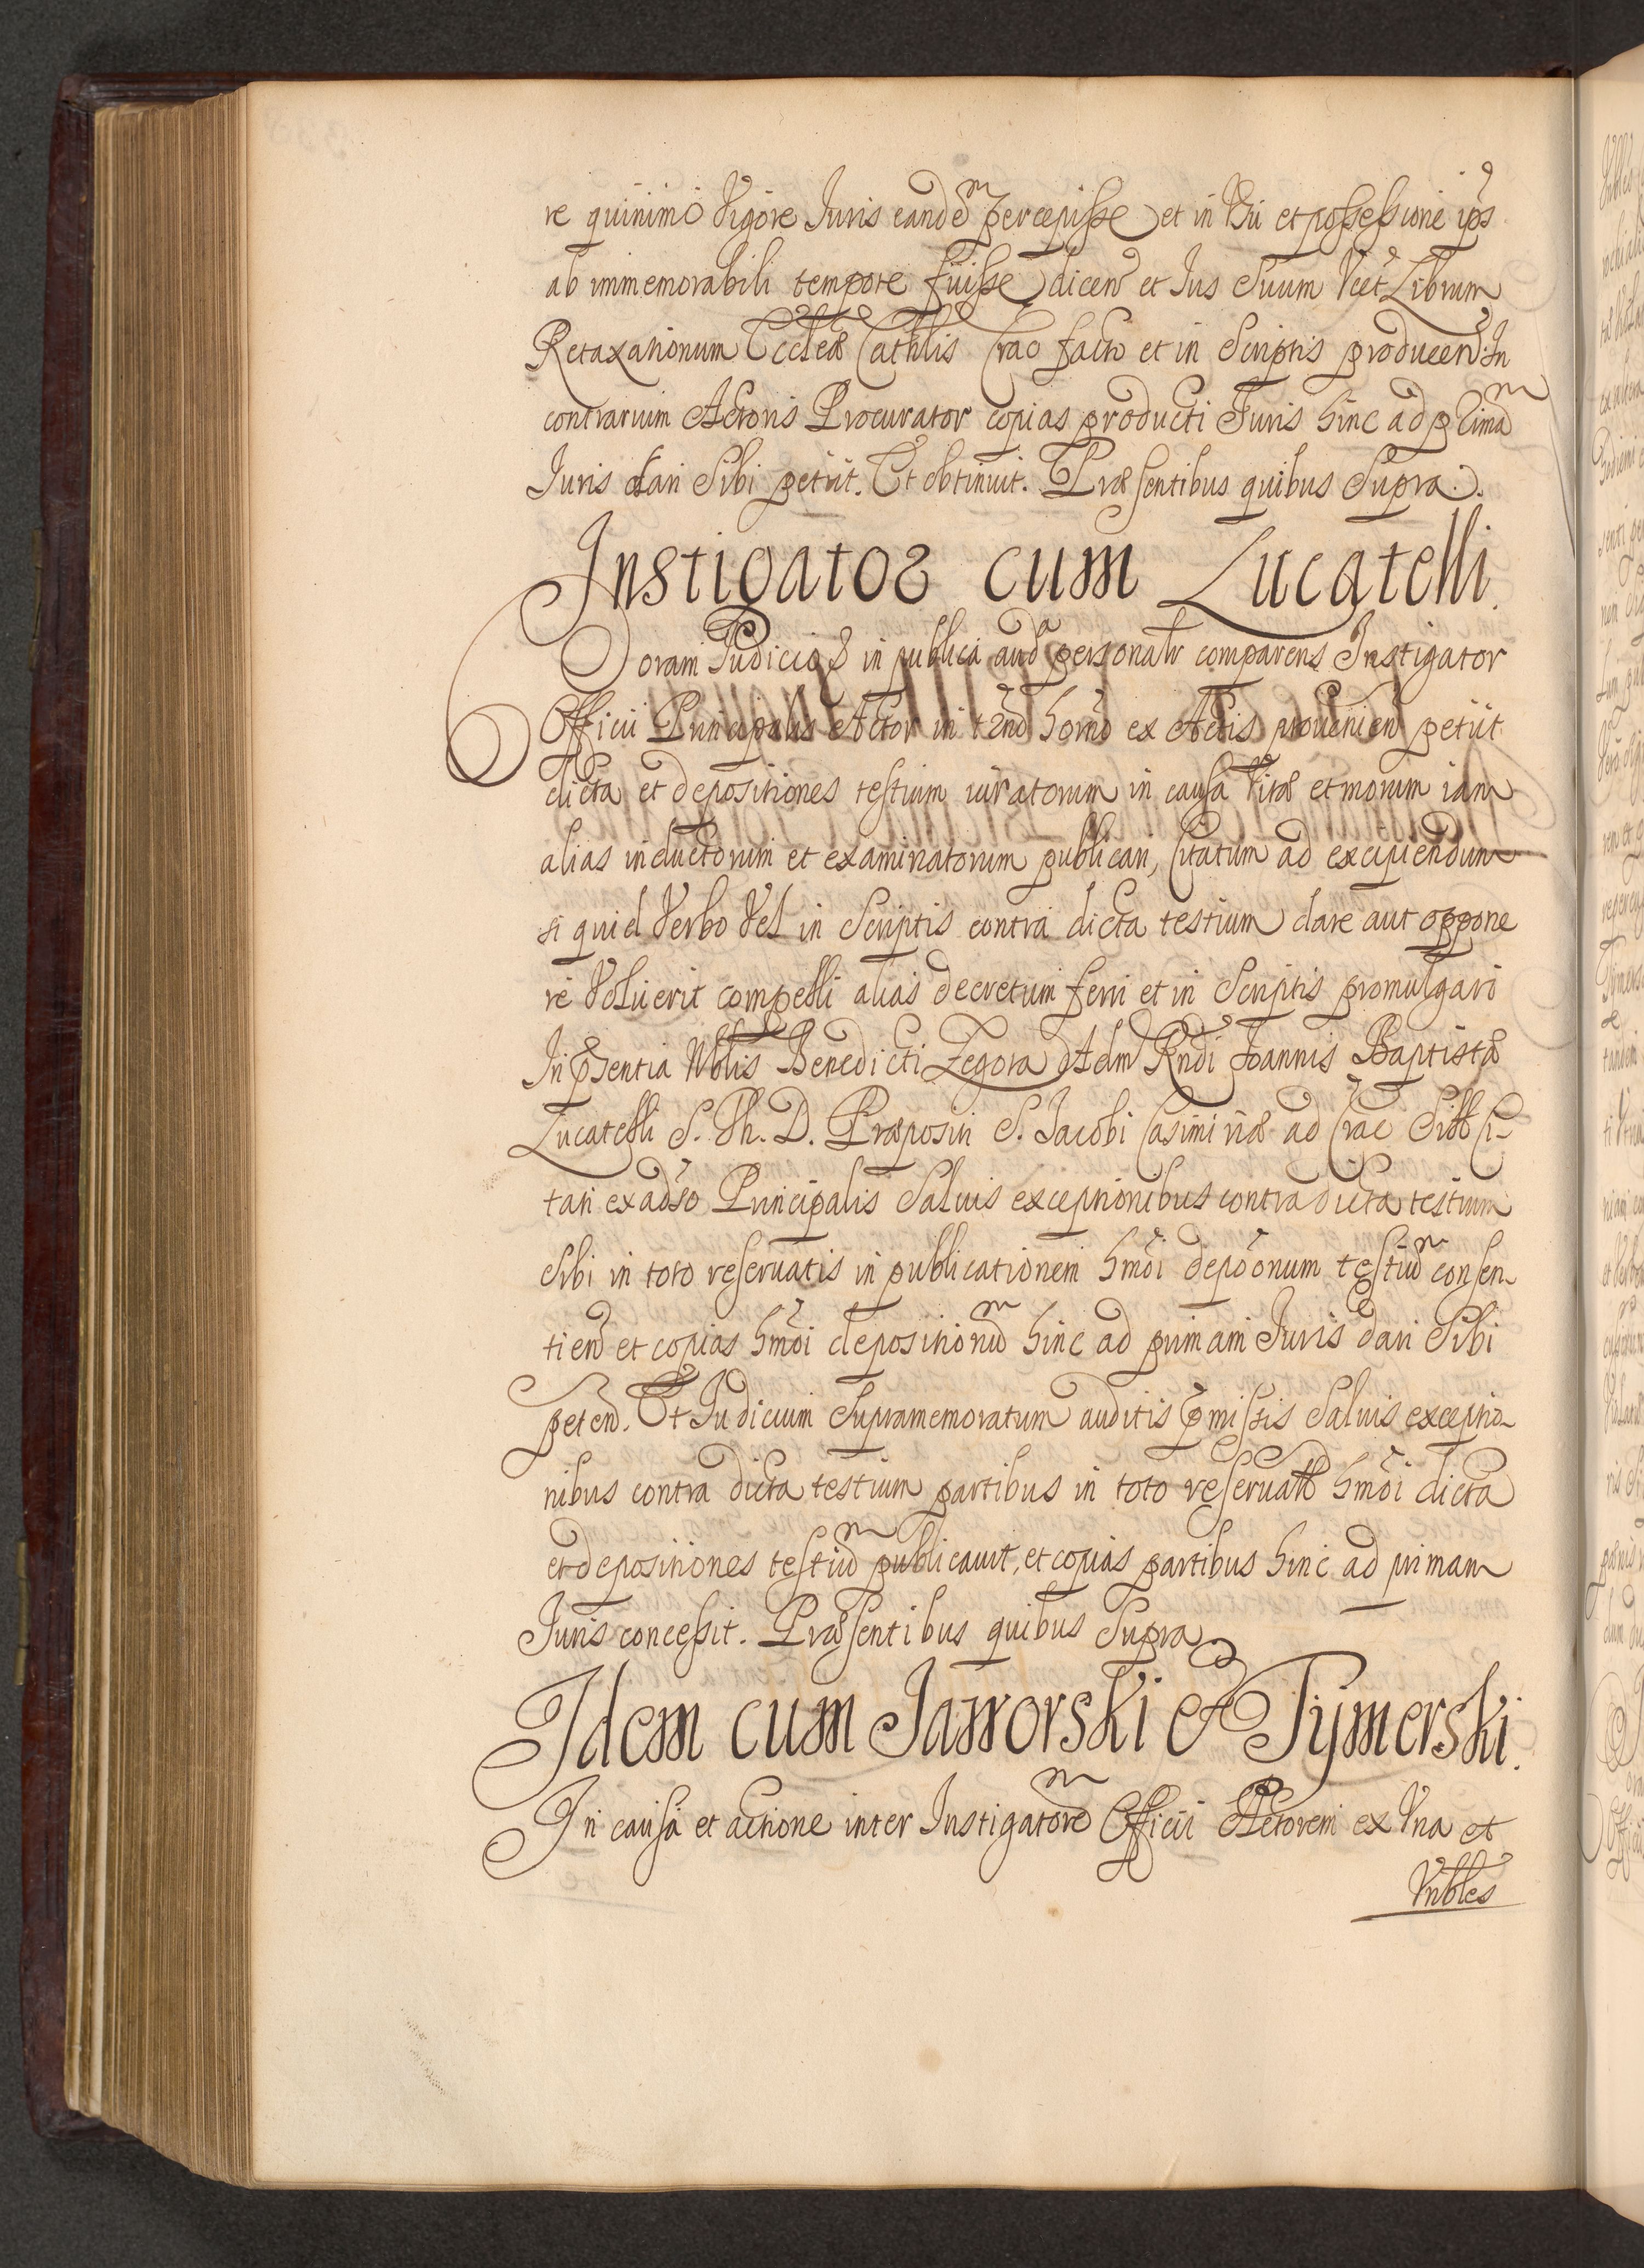 re quinimo Vigore Juris eandẽ percepisse et in Usu et possessione ips̃
ab immemorabili tempore fuisse dicen̄ et Jus Suum Vcet Librum
Retaxationum Eccłeæ Cathłis Crac̃ factõ et in Scriptis producen̄. In
contrarium Actoris Procurator copias producti Juris hinc ad primã
Juris dari Sibi petiit. Et obtinuit. Præsentibus quibus Supra.
Instigator cum Lucatelli.
Coram Judicio in publica aud̃ personaltr comparens Instigator
Officii Principalis Actor in tẽno hõrno ex Actis provenien̄ petiit
dicta et depositiones testium iuratorum in causa Vitæ et morum iam
alias inductorum et examinatorum publicari, Citatum ad excipiendum
si quid Verbo Vel in Scriptis contra dicta testium dare aut oppone
re Voluerit compelli alias decretum ferri et in Scriptis promulgari
In pñsentia Nobłis Benedicti Zegora Adm̃ Rñdi Joannis Baptistæ
Lucatelli S. Th. D. Præpositi S. Jacobi Casimiriæ ad Crac̃ Siti Ci-
tati ex adṽso Principalis Salvis exceptionibus contra dicta testium
Sibi in toto reservatis in publicationem hm̃oi depõonum testiũ consen-
tien̄ et copias hm̃oi depositionũ hinc ad primam Juris dari Sibi
peten̄. Et Judicium Supramemoratum auditis p̃missis Salvis exceptio-
nibus contra dicta testium partibus in toto reservatis hm̃oi dicta
et depositiones testiũ publicavit, et copias partibus hinc ad primam
Juris concessit. Præsentibus quibus Supra.
Idem cum Jaworski et Tymerski.
In causa et actione inter Instigatorẽ Officii Actorem ex Una et
Vnbłes